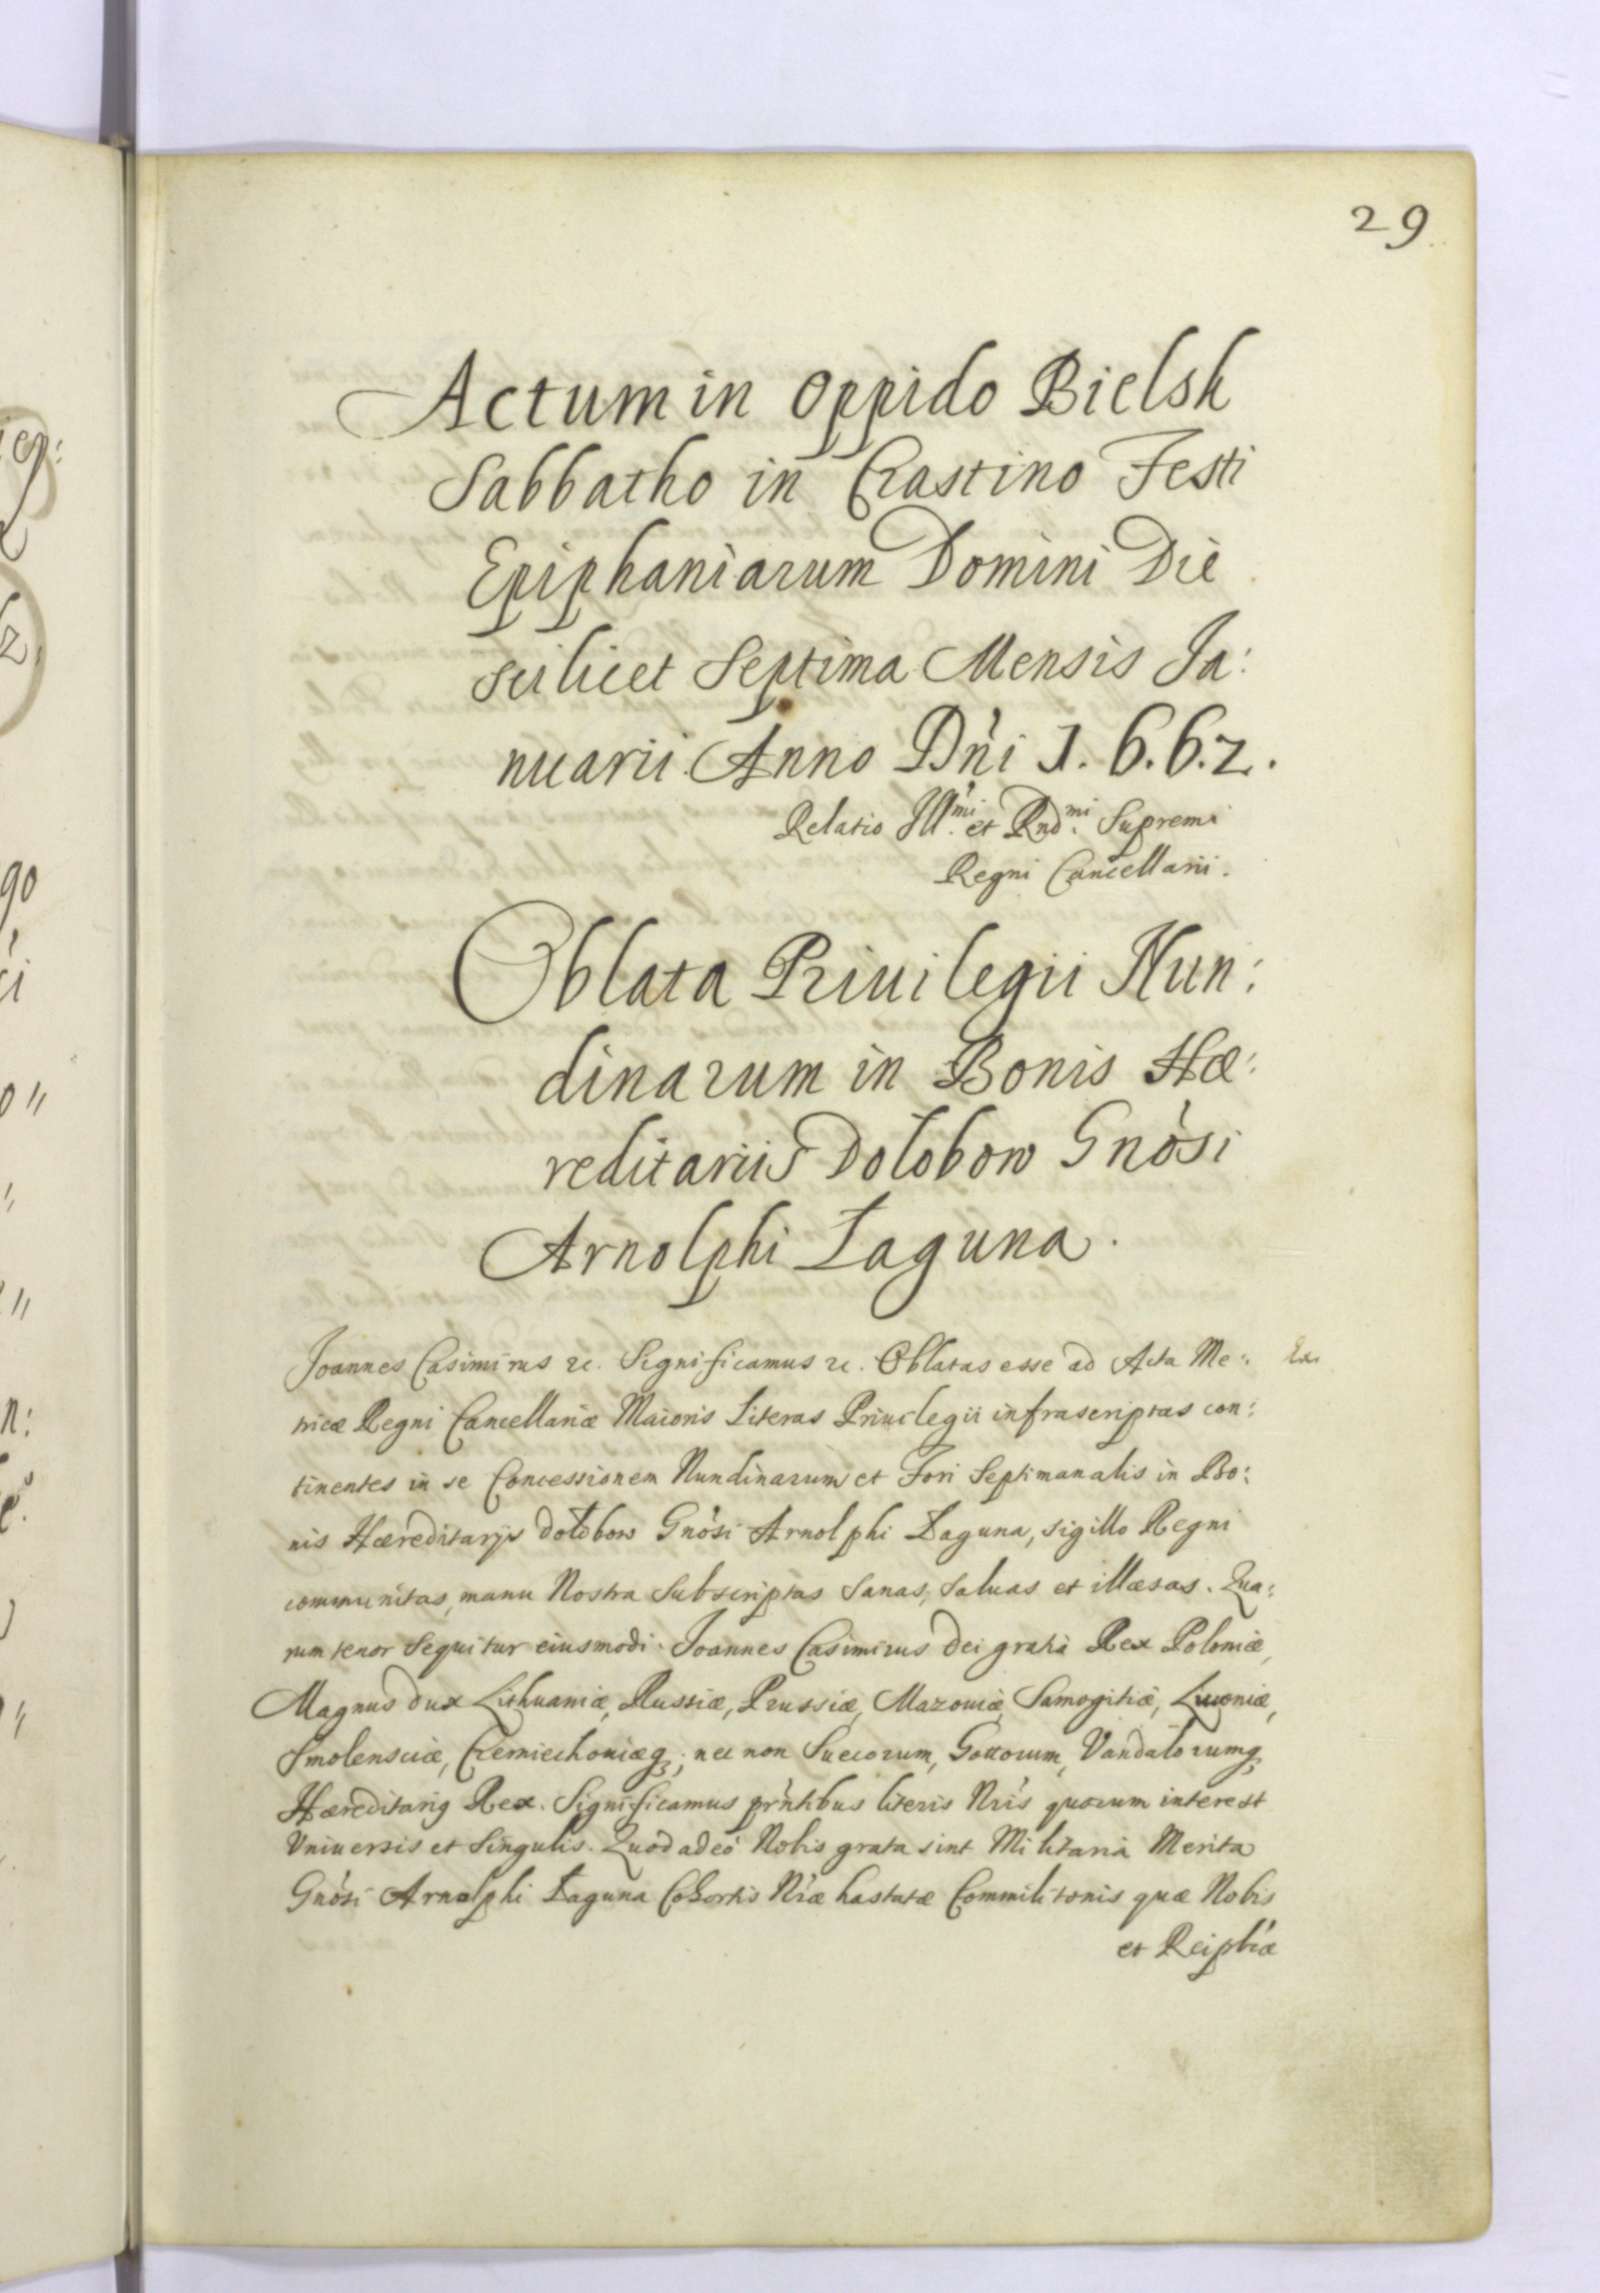 29
Actum in Oppido Bielsk
Sabbatho in Crastino Festi
Epiphaniarum Domini Die
scilicet Septima Mensis Ja:
nuarii Anno Dn̍i 1.6.6.2.
Relatio Ill.mi et Rnd.mi Supremi
Regni Cancellarii.
Oblata Priuilegii Nun:
dinarum in Bonis Hæ:
reditariis Dołobow Gnósi
Arnolphi Łaguna.
Joannes Casimirus etc. Significamus etc. Oblatas esse ad Acta Me:
tricæ Regni Cancellariæ Maioris Literas Priuilegii infrascriptas con:
tinentes in se Concessionem Nundinarum et Fori Septimanalis in Bo:
nis Hæreditarijs Dołobow Gnósi Arnolphi Łaguna, sigillo Regni
communitas, manu Nostra Subscriptas Sanas, Saluas et illæsas. Qua:
rum tenor Sequitur eiusmodi. Joannes Casimirus Dei gratia Rex Poloniæ,
Magnus Dux Lithuaniæ, Russiæ, Prussiæ, Mazouiæ, Samogitiæ, Liuoniæ,
Smolensciæ, Czerniechouiæq; nec non Suecorum, Gottorum, Vandalorumq;
Hæreditarig Rex. Significamus pŕntibus literis Nŕis quorum interest
Vniuersis et Singulis. Quod adeó Nobis grata sint Militaria Merita
Gnósi Arnolphi Łaguna Cohortis Nŕæ hastatæ Commilitonis quæ Nobis
et Reipb́æ